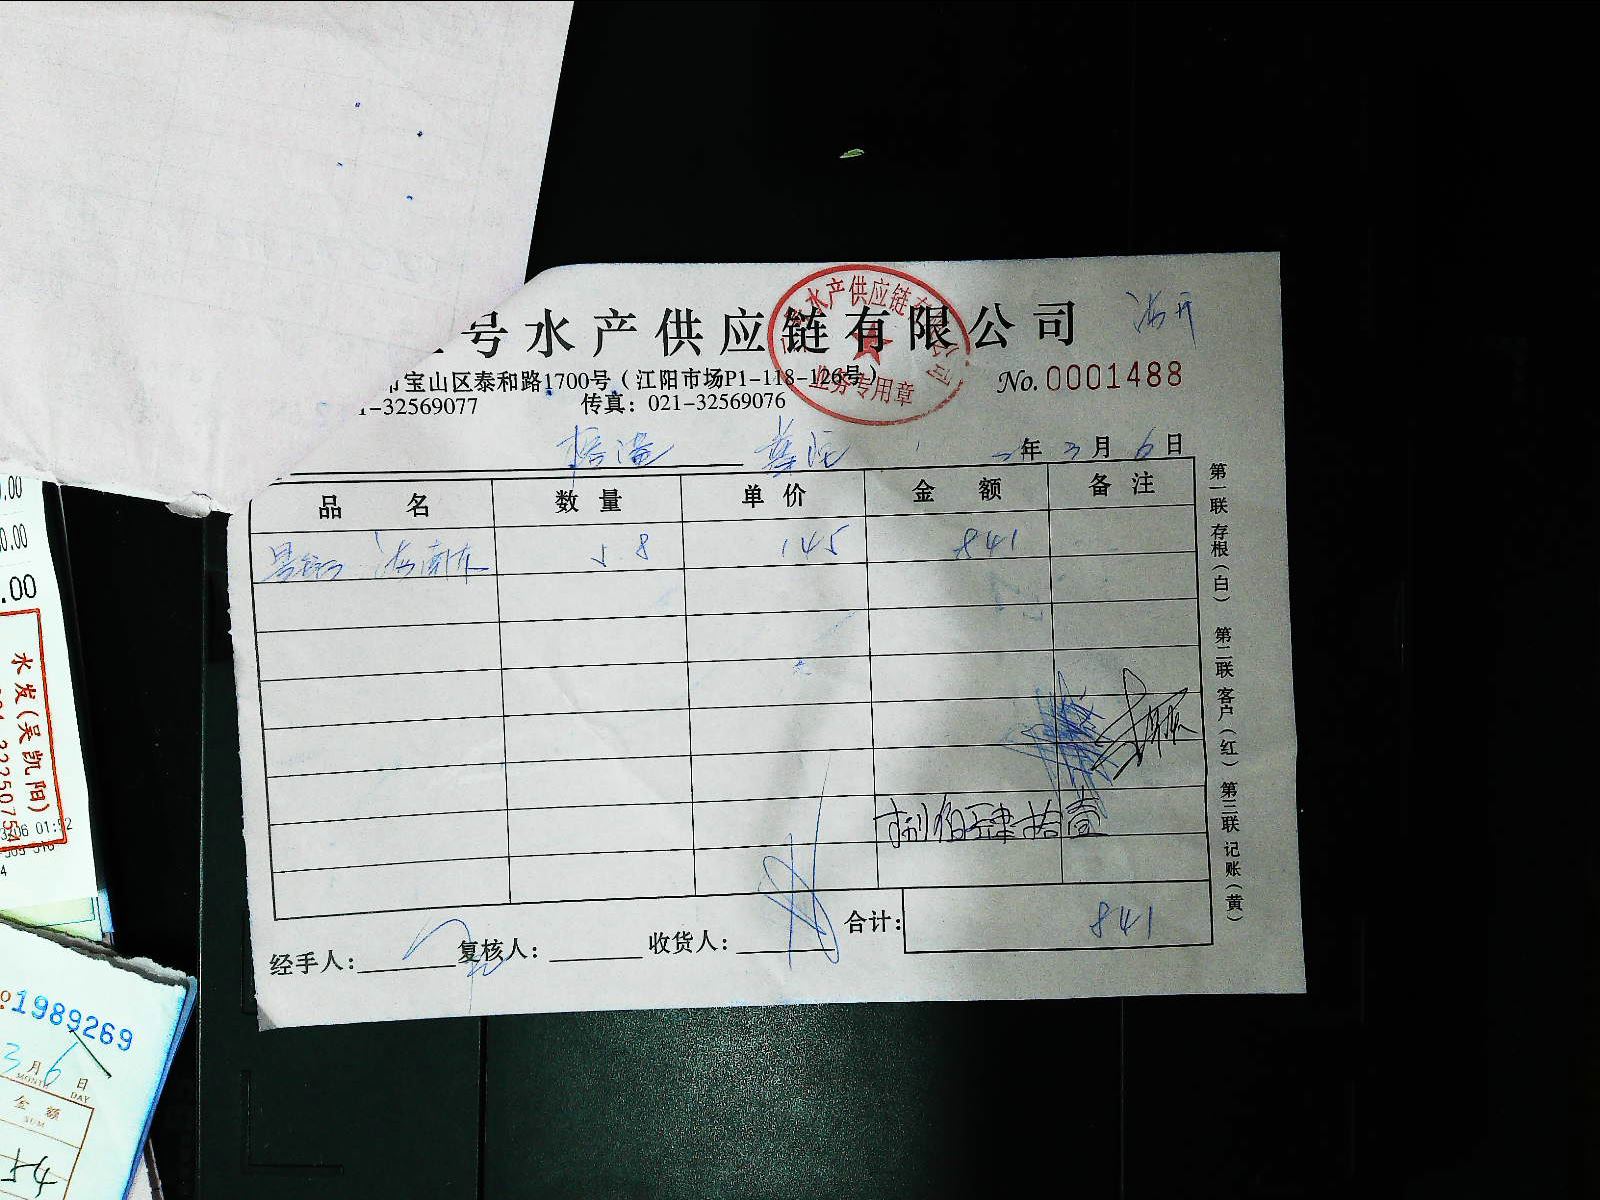 号水产供应链有限公司
宝山区泰和路1700号（江阳市场P1-118-126号）
No.0001488
-32569077 传真：021-32569076
年 3 月 6 日
品 名 数 量 单 价 金 额 备 注
海南东 5.8 145 841
捌佰肆拾壹
合计： 841
经手人： 复核人： 收货人：
第一联 存根（白） 第二联 客户（红） 第三联 记账（黄）
水产供应链有限公司
业务专用章
.00
0.00
.00
水发（吴凯阳）
1989269
3 月 6 日
MONTH DAY
金 额
SUM
54